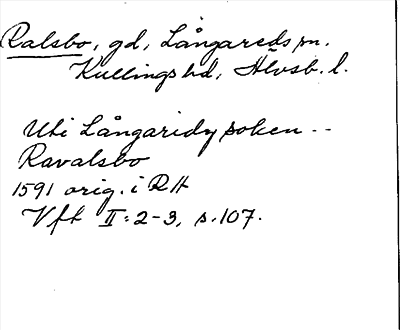 Ralsbo, gd, Långareds sn.
Kullings hd, Älvsb. l.
Uti Långaridz soken --
Ravalsbo
1591 orig. i RA
Vft II: 2-3, s. 107.